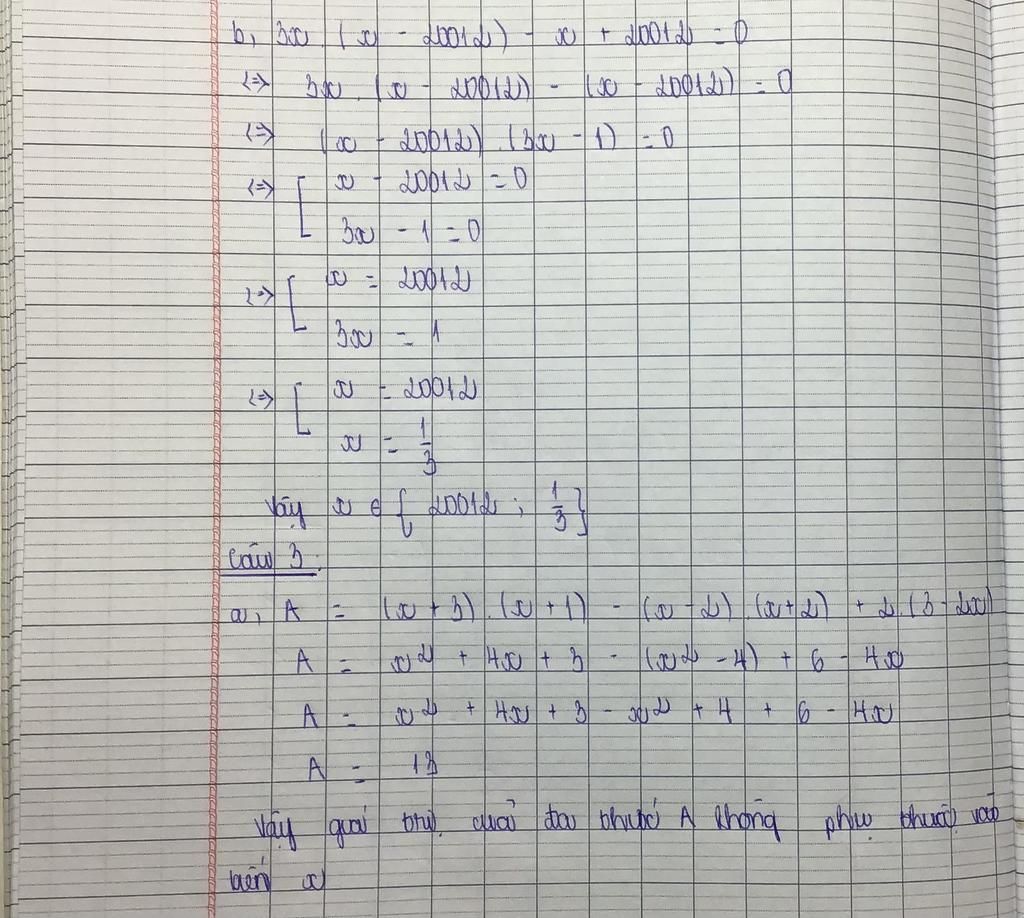 b, 3x (x - 20012) - x + 20012 = 0
<=> 3x . (x - 20012) - (x - 20012) = 0
<=> (x - 20012) . (3x - 1) = 0
<=> [ x - 20012 = 0
3x - 1 = 0
<=> [ x = 20012
3x = 1
<=> [ x = 20012
x = 1/3
Vậy x ∈ { 20012 ; 1/3 }
Câu 3:
a, A = (x + 3) . (x + 1) - (x - 2) . (x + 2) + 2 . (3 - 2x)
A = x² + 4x + 3 - (x² - 4) + 6 - 4x
A = x² + 4x + 3 - x² + 4 + 6 - 4x
A = 13
Vậy giá trị của đa thức A không phụ thuộc vào
biến x